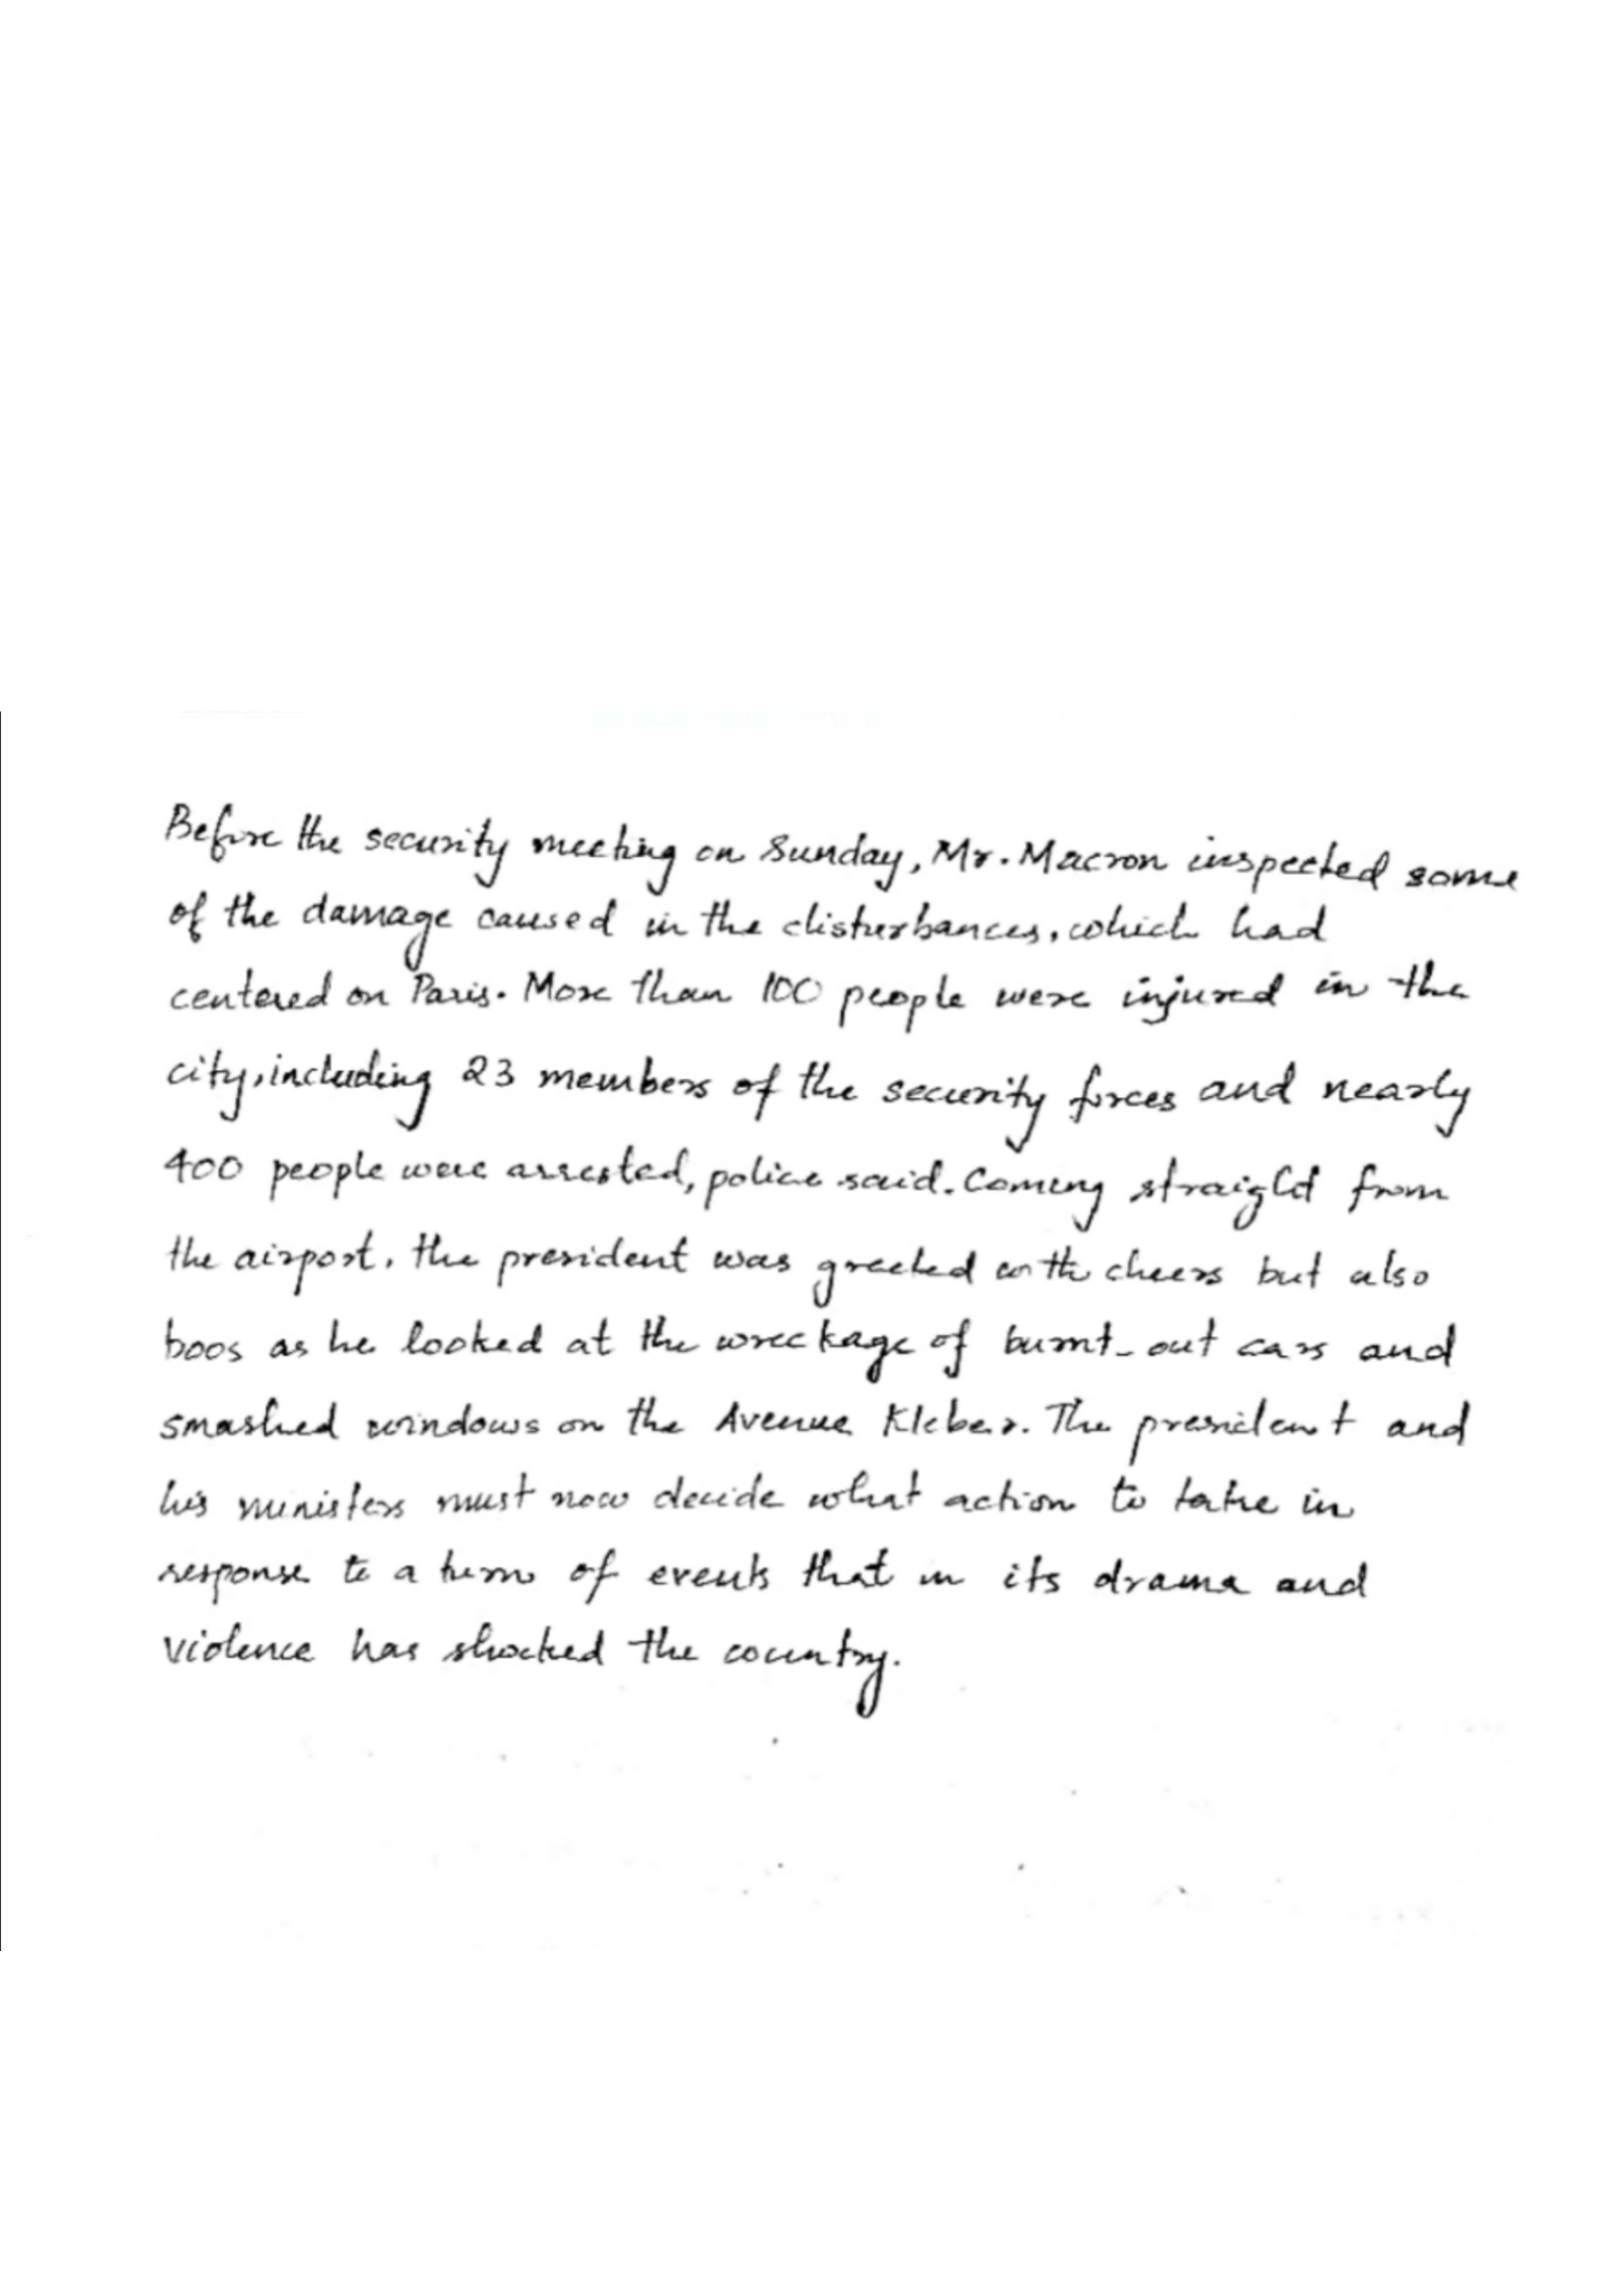 Before the security meeting on Sunday, Mr. Macron inspected some
of the damage caused in the disturbances, which had
centered on Paris. More than 100 people were injured in the
city, including 23 members of the security forces and nearly
400 people were arrested, police said. Coming straight from
the airport, the president was greeted with cheers but also
boos as he looked at the wreckage of burnt-out cars and
smashed windows on the Avenue Kleber. The president and
his ministers must now decide what action to take in
response to a turn of events that in its drama and
violence has shocked the country.